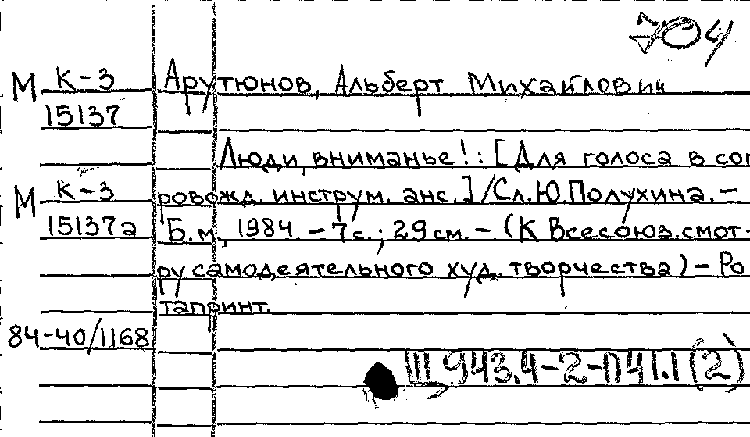 704
М К-3 Арутюнов, Альберт Михайлович
15137
Люди, вниманье!: [Для голоса в соп
М К-3 ровожд. инструм. анс.]/Сл. Ю. Полухина. –
15137а Б.м., 1984. – 7с.; 29см. – (К Всесоюз. смот-
ру самодеятельного худ. творчества) – Ро
тапринт.
84-40/1168
Щ 943.4-2-П41.1(2)